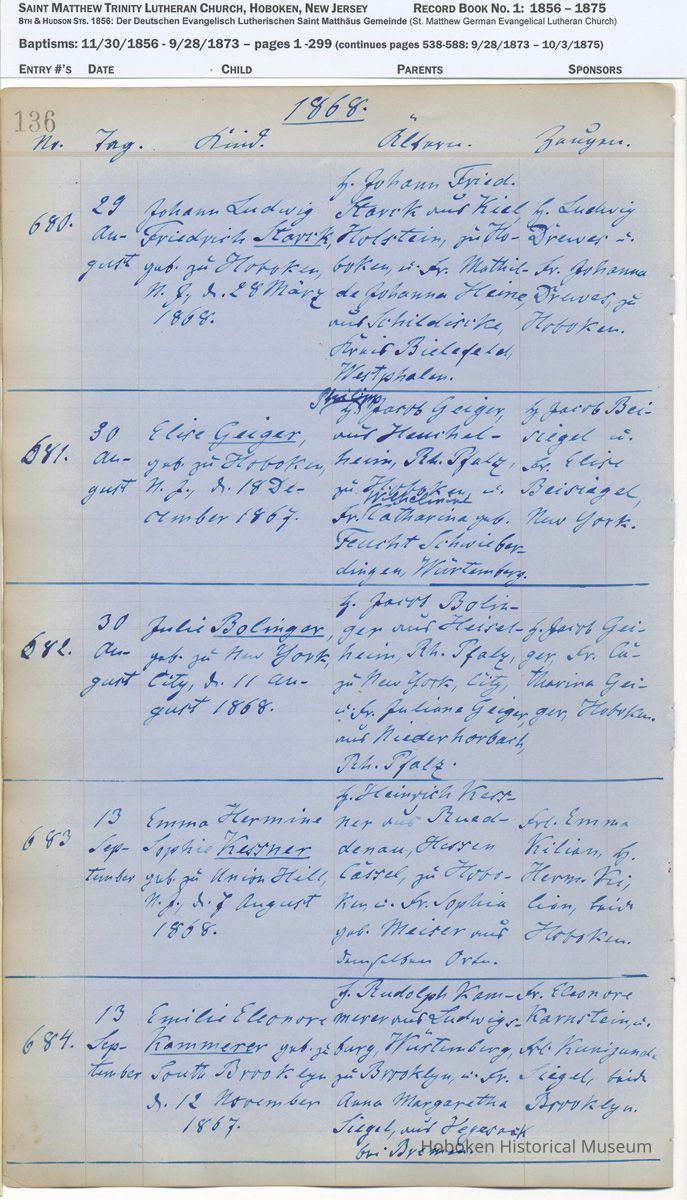 SAINT MATTHEW TRINITY LUTHERAN CHURCH, HOBOKEN, NEW JERSEY RECORD BOOK NO. 1: 1856 – 1875
8TH & HUDSON STS. 1856: Der Deutschen Evangelisch Lutherischen Saint Matthäus Gemeinde (St. Matthew German Evangelical Lutheran Church)
Baptisms: 11/30/1856 - 9/28/1873 – pages 1 -299 (continues pages 538-588: 9/28/1873 – 10/3/1875)
ENTRY #'S DATE CHILD PARENTS SPONSORS
136
1868.
Nr. Tag. Kind. Ältern. Zeugen.
680.
29
Au-
gust
Johann Ludwig
Friedrich Starck,
geb. zu Hoboken,
N. J., d. 28 März
1868.
H. Johann Fried.
Starck aus Kiel,
Holstein, zu Ho-
boken, u. Fr. Mathil-
de Johanna Heine,
aus Schildescke,
Kreis Bielefeld,
Westphalen.
H. Ludwig
Drewes u.
Fr. Johanna
Drewes, zu
Hoboken.
681.
30
Au-
gust
Elise Geiger,
geb. zu Hoboken,
N. J., d. 18 De-
cember 1867.
Philipp
H. Jacob Geiger,
aus Heuchel-
heim, Rh. Pfalz,
zu Hoboken, u.
Wilhelmine
Fr. Catharina geb.
Feucht Schwieber-
dingen, Würtemberg.
H. Jacob Bei-
siegel u.
Fr. Elise
Beisiegel,
New York.
682.
30
Au-
gust
Julie Bolinger,
geb. zu New York,
City, d. 11 Au-
gust 1868.
H. Jacob Bolin-
ger aus Heichel-
heim, Rh. Pfalz,
zu New York, City,
u. Fr. Juliana Geiger,
aus Niederhorbach,
Rh. Pfalz.
H. Jacob Gei-
ger, Fr. Ca-
tharina Gei-
ger, Hoboken.
683
13
Sep-
tember
Emma Hermine
Sophie Kessner
geb. zu Union Hill,
N. J., d. 7 August
1868.
H. Heinrich Kess-
ner aus
denau, Hessen
Cassel, zu Hobo-
ken u. Fr. Sophia
geb. Meiser aus
demselben Orte.
Frl. Emma
Kilian, H.
Herm. Ki-
lian, beide
Hoboken.
684.
13
Sep-
tember
Emilie Eleonore
Kammerer geb. zu
South Brooklyn
d. 12 November
1867.
H. Rudolph Kam-
merer aus Ludwigs-
burg, Würtemberg,
zu Brooklyn, u. Fr.
Anna Margaretha
Siegel, aus
bei Bremen.
Fr. Eleonore
Karnstein, u.
Frl. Kunigunde
Siegel, beide
Brooklyn.
Hoboken Historical Museum